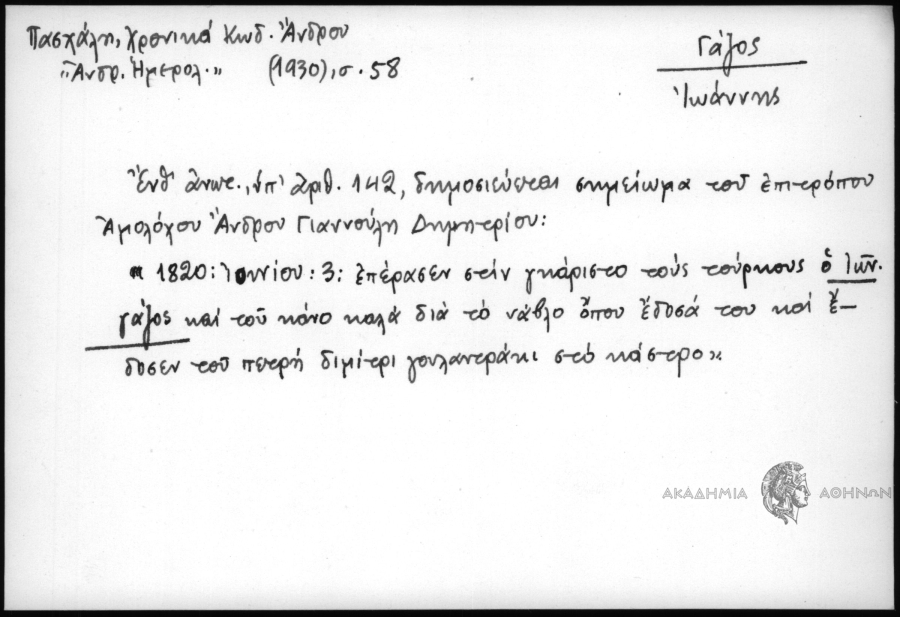 Πασχάλη, Χρονικά Κωδ. Ἄνδρου
"Ἀνδρ. Ἡμερολ." (1930), σ. 58
Γάζος
Ἰωάννης
Ἔνθ' ἀνωτ., ὑπ' ἀριθ. 142, δημοσιεύεται σημείωμα τοῦ ἐπιτρόπου
Ἀμολόχου Ἄνδρου Γιαννούλη Δημητρίου:
« 1820: Ἰουνίου: 3: ἐπέρασεν στὴν γκάριστο τοὺς τούρκους ὁ Ἰωάν.
γάζος καὶ τοῦ κάνο καλὰ διὰ τὸ νάβλο ὅπου ἔδοσά του καὶ ἔ-
δοσεν τοῦ πετρῆ διμίτρι γουλαντράκι στὸ κάστρο».
ΑΚΑΔΗΜΙΑ ΑΘΗΝΩΝ